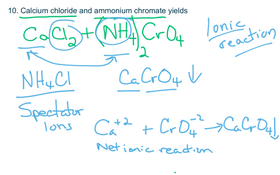 10. Calcium chloride and ammonium chromate yields
CaCl2 + (NH4)2CrO4
Ionic
reaction
NH4Cl CaCrO4 ↓
Spectator
Ions
Ca+2 + CrO4-2 → CaCrO4↓
Net ionic reaction